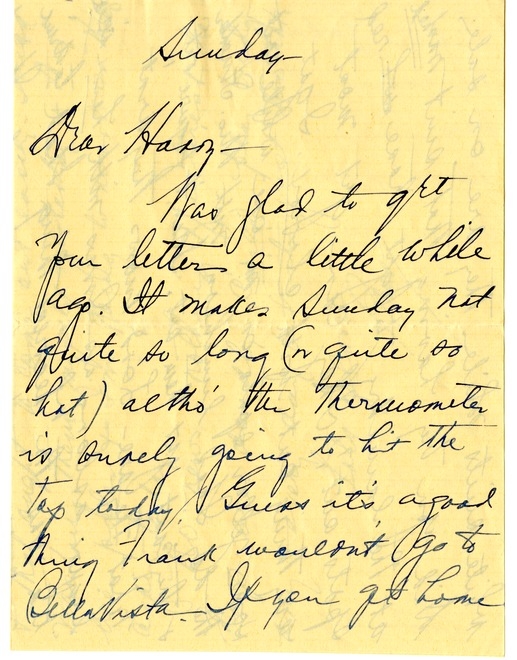 Sunday
Dear Harry—
Was glad to get
your letters a little while
ago. It makes Sunday not
quite so long (or quite so
hot) altho' the Thermometer
is surely going to hit the
top today. Guess it's a good
thing Frank wouldn't go to
Bella Vista. If you get home